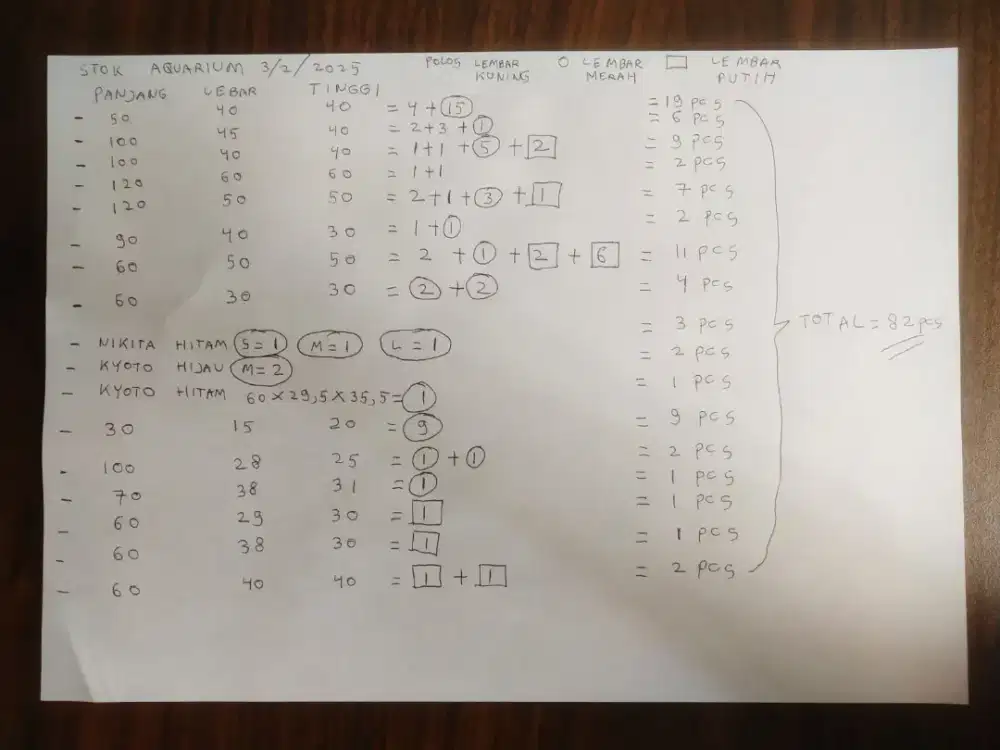 STOK AQUARIUM 3/2/2025 POLOS LEMBAR KUNING O LEMBAR MERAH □ LEMBAR PUTIH
PANJANG LEBAR TINGGI
- 50 40 40 = 4 + (15) = 19 pcs
- 100 45 40 = 2+3 + (1) = 6 pcs
- 100 40 40 = 1+1 + (5) + [2] = 9 pcs
- 120 60 60 = 1+1 = 2 pcs
- 120 50 50 = 2+1+(3) + [1] = 7 pcs
- 90 40 30 = 1 + (1) = 2 pcs
- 60 50 50 = 2 + (1) + [2] + [6] = 11 pcs
- 60 30 30 = (2) + (2) = 4 pcs
- NIKITA HITAM (S=1) (M=1) (L=1) = 3 pcs
- KYOTO HIJAU (M=2) = 2 pcs
- KYOTO HITAM 60 x 29,5 x 35,5 = (1) = 1 pcs
- 30 15 20 = (9) = 9 pcs
- 100 28 25 = (1) + (1) = 2 pcs
- 70 38 31 = (1) = 1 pcs
- 60 29 30 = [1] = 1 pcs
- 60 38 30 = [1] = 1 pcs
- 60 40 40 = [1] + [1] = 2 pcs
TOTAL = 82 pcs